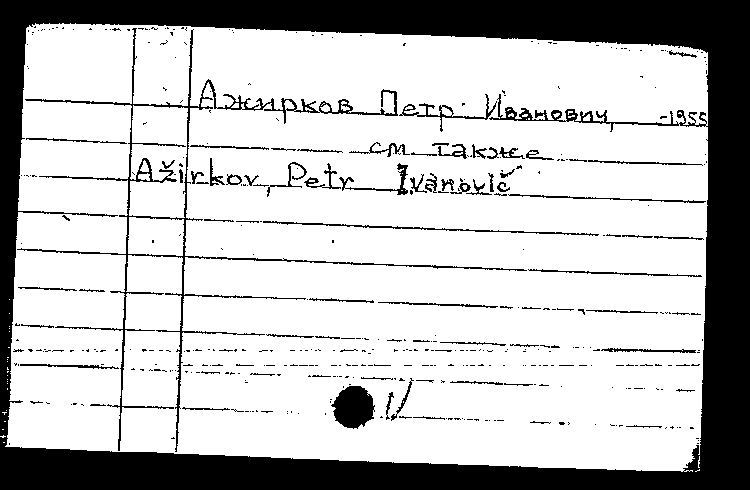 Ажирков Петр Иванович, -1955
см. также
Ažirkov, Petr Ivanovič